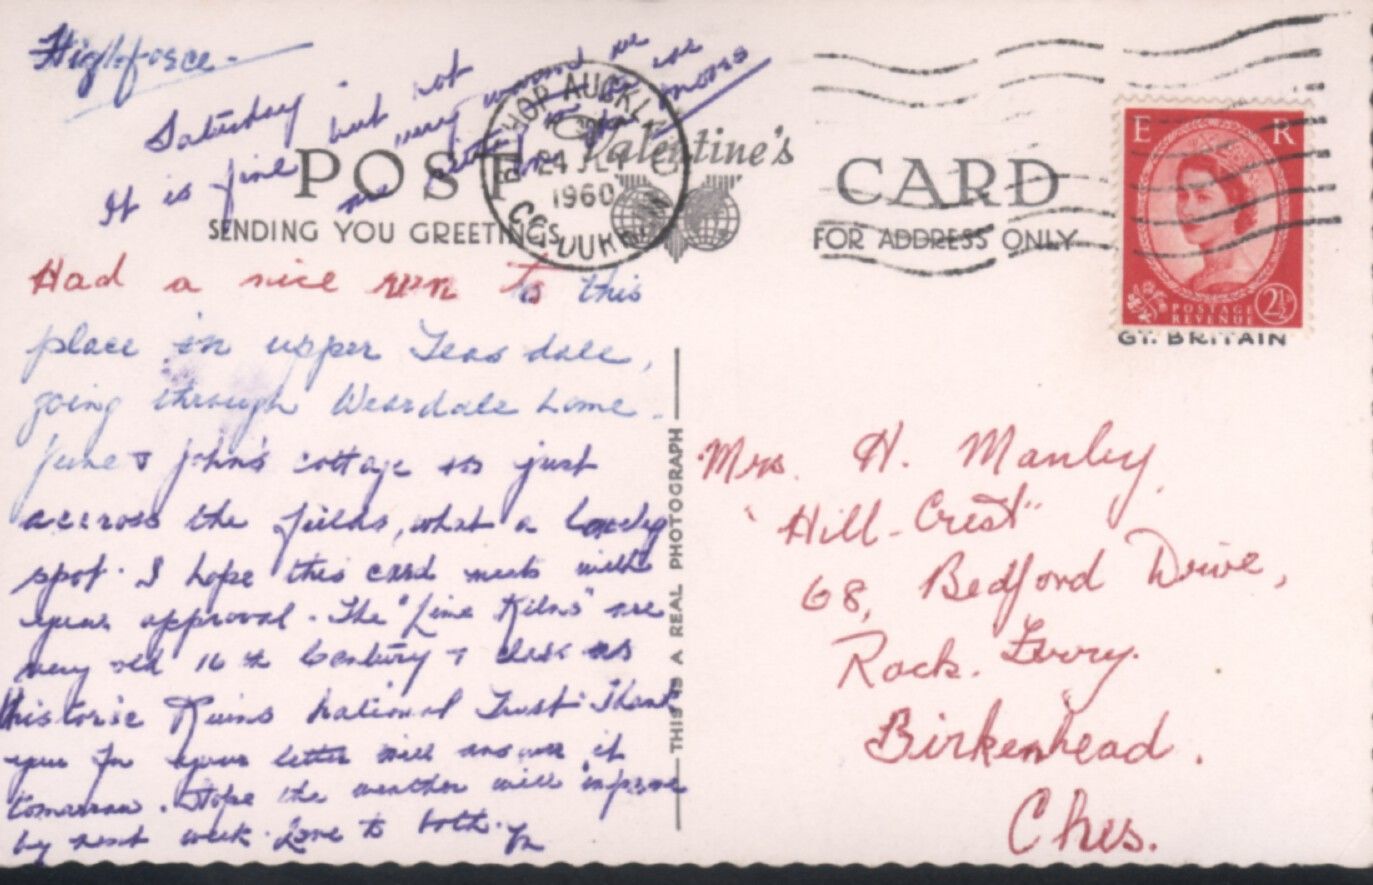 High-force -
Saturday
It is fine but not very warm we
are sitting in the car on the moors
POST CARD
Valentine's
SENDING YOU GREETINGS
FOR ADDRESS ONLY
BISHOP AUCKLAND
24 JL
1960
CO. DURHAM
E R
POSTAGE
REVENUE
2½
GT. BRITAIN
Had a nice run to this
place in upper Teasdale,
going through Weardale home.
June & John's cottage is just
accross the fields, what a lovely
spot. I hope this card meets with
your approval. The "Lime Kilns" are
very old 16th Century & class as
historic Ruins National Trust. Thank
you for your letter will answer it
tomorrow. Hope the weather will improve
by next week. Love to both.
THIS IS A REAL PHOTOGRAPH
Mrs. H. Manley,
"Hill-Crest"
68, Bedford Drive,
Rock. Ferry.
Birkenhead.
Ches.